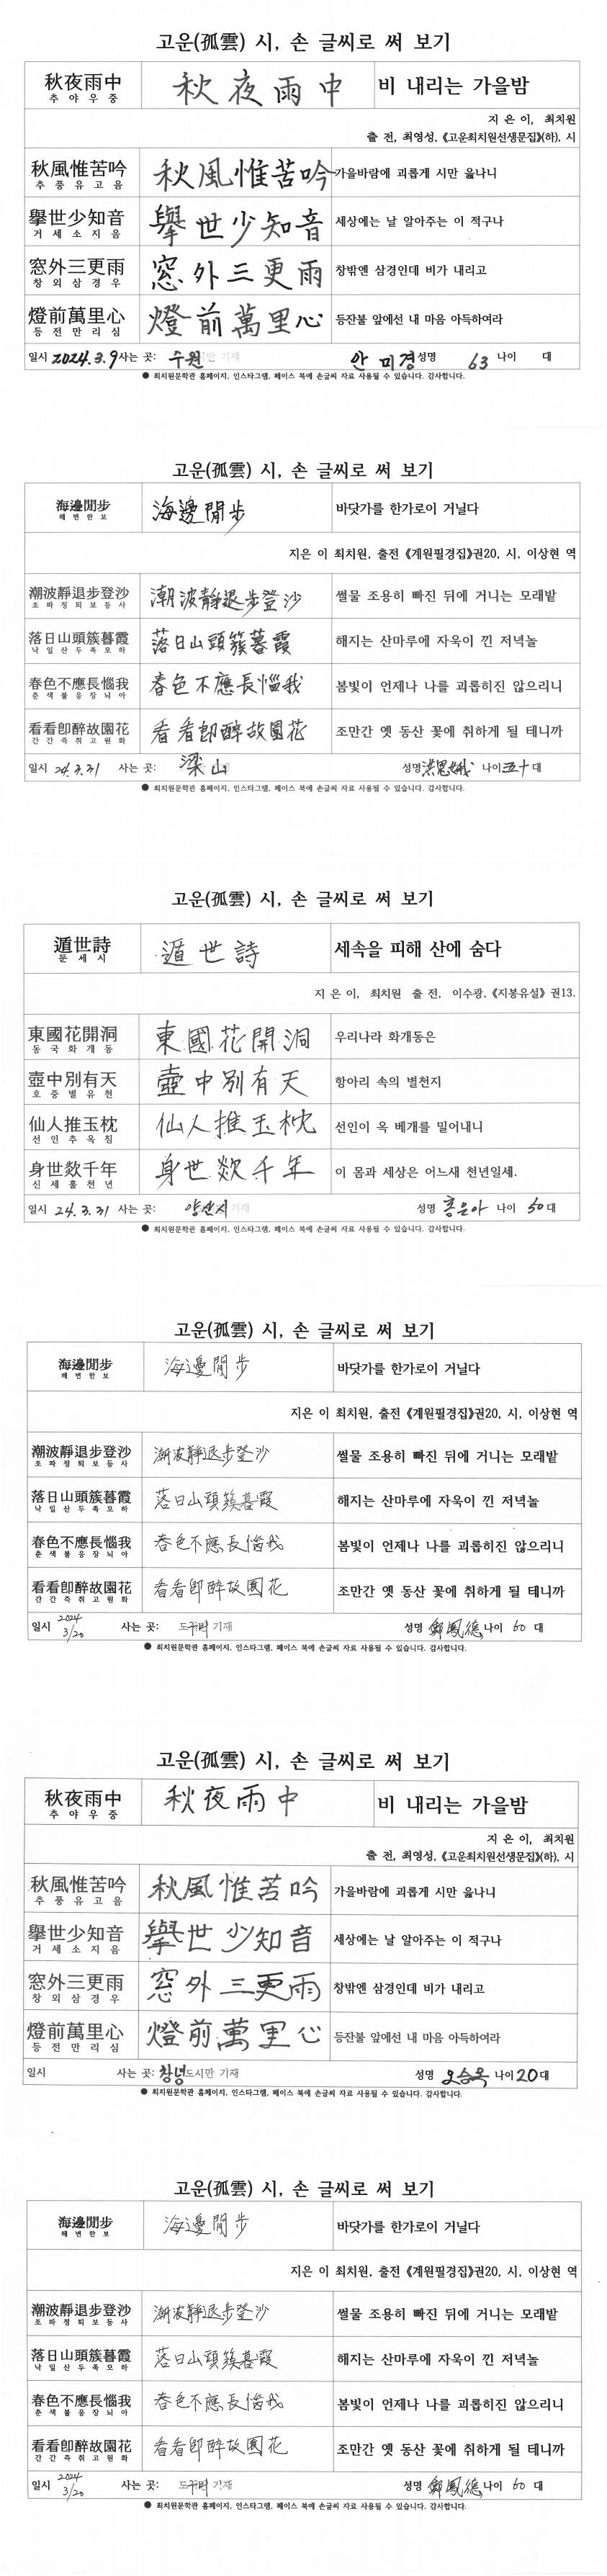 고운(孤雲) 시, 손 글씨로 써 보기
秋夜雨中 秋夜雨中 비 내리는 가을밤
추야우중
지 은 이, 최치원
출 전, 최영성, 《고운최치원선생문집》(하), 시
秋風惟苦吟 秋風惟苦吟 가을바람에 괴롭게 시만 읊나니
추풍유고음
擧世少知音 擧世少知音 세상에는 날 알아주는 이 적구나
거세소지음
窓外三更雨 窓外三更雨 창밖엔 삼경인데 비가 내리고
창외삼경우
燈前萬里心 燈前萬里心 등잔불 앞에선 내 마음 아득하여라
등전만리심
일시 2024.3.9 사는 곳: 수원 시만 기재 안미경 성명 63 나이 대
● 최치원문학관 홈페이지, 인스타그램, 페이스 북에 손글씨 자료 사용될 수 있습니다. 감사합니다.
고운(孤雲) 시, 손 글씨로 써 보기
海邊閒步 海邊閒步 바닷가를 한가로이 거닐다
해변한보
지은 이 최치원, 출전 《계원필경집》권20, 시, 이상현 역
潮波靜退步登沙 潮波靜退步登沙 썰물 조용히 빠진 뒤에 거니는 모래밭
조파정퇴보등사
落日山頭簇暮霞 落日山頭簇暮霞 해지는 산마루에 자욱이 낀 저녁놀
낙일산두족모하
春色不應長惱我 春色不應長惱我 봄빛이 언제나 나를 괴롭히진 않으리니
춘색불응장뇌아
看看卽醉故園花 看看卽醉故園花 조만간 옛 동산 꽃에 취하게 될 테니까
간간즉취고원화
일시 24.3.31 사는 곳: 梁山 성명 洪恩娥 나이 五十 대
● 최치원문학관 홈페이지, 인스타그램, 페이스 북에 손글씨 자료 사용될 수 있습니다. 감사합니다.
고운(孤雲) 시, 손 글씨로 써 보기
遁世詩 遁世詩 세속을 피해 산에 숨다
둔세시
지 은 이, 최치원 출 전, 이수광, 《지봉유설》 권13.
東國花開洞 東國花開洞 우리나라 화개동은
동국화개동
壺中別有天 壺中別有天 항아리 속의 별천지
호중별유천
仙人推玉枕 仙人推玉枕 선인이 옥 베개를 밀어내니
선인추옥침
身世欻千年 身世欻千年 이 몸과 세상은 어느새 천년일세.
신세훌천년
일시 24.3.31 사는 곳: 양산시 기재 성명 홍은아 나이 50대
● 최치원문학관 홈페이지, 인스타그램, 페이스 북에 손글씨 자료 사용될 수 있습니다. 감사합니다.
고운(孤雲) 시, 손 글씨로 써 보기
海邊閒步 海邊閒步 바닷가를 한가로이 거닐다
해변한보
지은 이 최치원, 출전 《계원필경집》권20, 시, 이상현 역
潮波靜退步登沙 潮波靜退步登沙 썰물 조용히 빠진 뒤에 거니는 모래밭
조파정퇴보등사
落日山頭簇暮霞 落日山頭簇暮霞 해지는 산마루에 자욱이 낀 저녁놀
낙일산두족모하
春色不應長惱我 春色不應長惱我 봄빛이 언제나 나를 괴롭히진 않으리니
춘색불응장뇌아
看看卽醉故園花 看看卽醉故園花 조만간 옛 동산 꽃에 취하게 될 테니까
간간즉취고원화
일시 2024 3/20 사는 곳: 기재 성명 鄭鳳德 나이 60 대
● 최치원문학관 홈페이지, 인스타그램, 페이스 북에 손글씨 자료 사용될 수 있습니다. 감사합니다.
고운(孤雲) 시, 손 글씨로 써 보기
秋夜雨中 秋夜雨中 비 내리는 가을밤
추야우중
지 은 이, 최치원
출 전, 최영성, 《고운최치원선생문집》(하), 시
秋風惟苦吟 秋風惟苦吟 가을바람에 괴롭게 시만 읊나니
추풍유고음
擧世少知音 擧世少知音 세상에는 날 알아주는 이 적구나
거세소지음
窓外三更雨 窓外三更雨 창밖엔 삼경인데 비가 내리고
창외삼경우
燈前萬里心 燈前萬里心 등잔불 앞에선 내 마음 아득하여라
등전만리심
일시 사는 곳: 창녕 도시만 기재 성명 오승옥 나이 20대
● 최치원문학관 홈페이지, 인스타그램, 페이스 북에 손글씨 자료 사용될 수 있습니다. 감사합니다.
고운(孤雲) 시, 손 글씨로 써 보기
海邊閒步 海邊閒步 바닷가를 한가로이 거닐다
해변한보
지은 이 최치원, 출전 《계원필경집》권20, 시, 이상현 역
潮波靜退步登沙 潮波靜退步登沙 썰물 조용히 빠진 뒤에 거니는 모래밭
조파정퇴보등사
落日山頭簇暮霞 落日山頭簇暮霞 해지는 산마루에 자욱이 낀 저녁놀
낙일산두족모하
春色不應長惱我 春色不應長惱我 봄빛이 언제나 나를 괴롭히진 않으리니
춘색불응장뇌아
看看卽醉故園花 看看卽醉故園花 조만간 옛 동산 꽃에 취하게 될 테니까
간간즉취고원화
일시 2024 3/20 사는 곳: 기재 성명 鄭鳳德 나이 60 대
● 최치원문학관 홈페이지, 인스타그램, 페이스 북에 손글씨 자료 사용될 수 있습니다. 감사합니다.